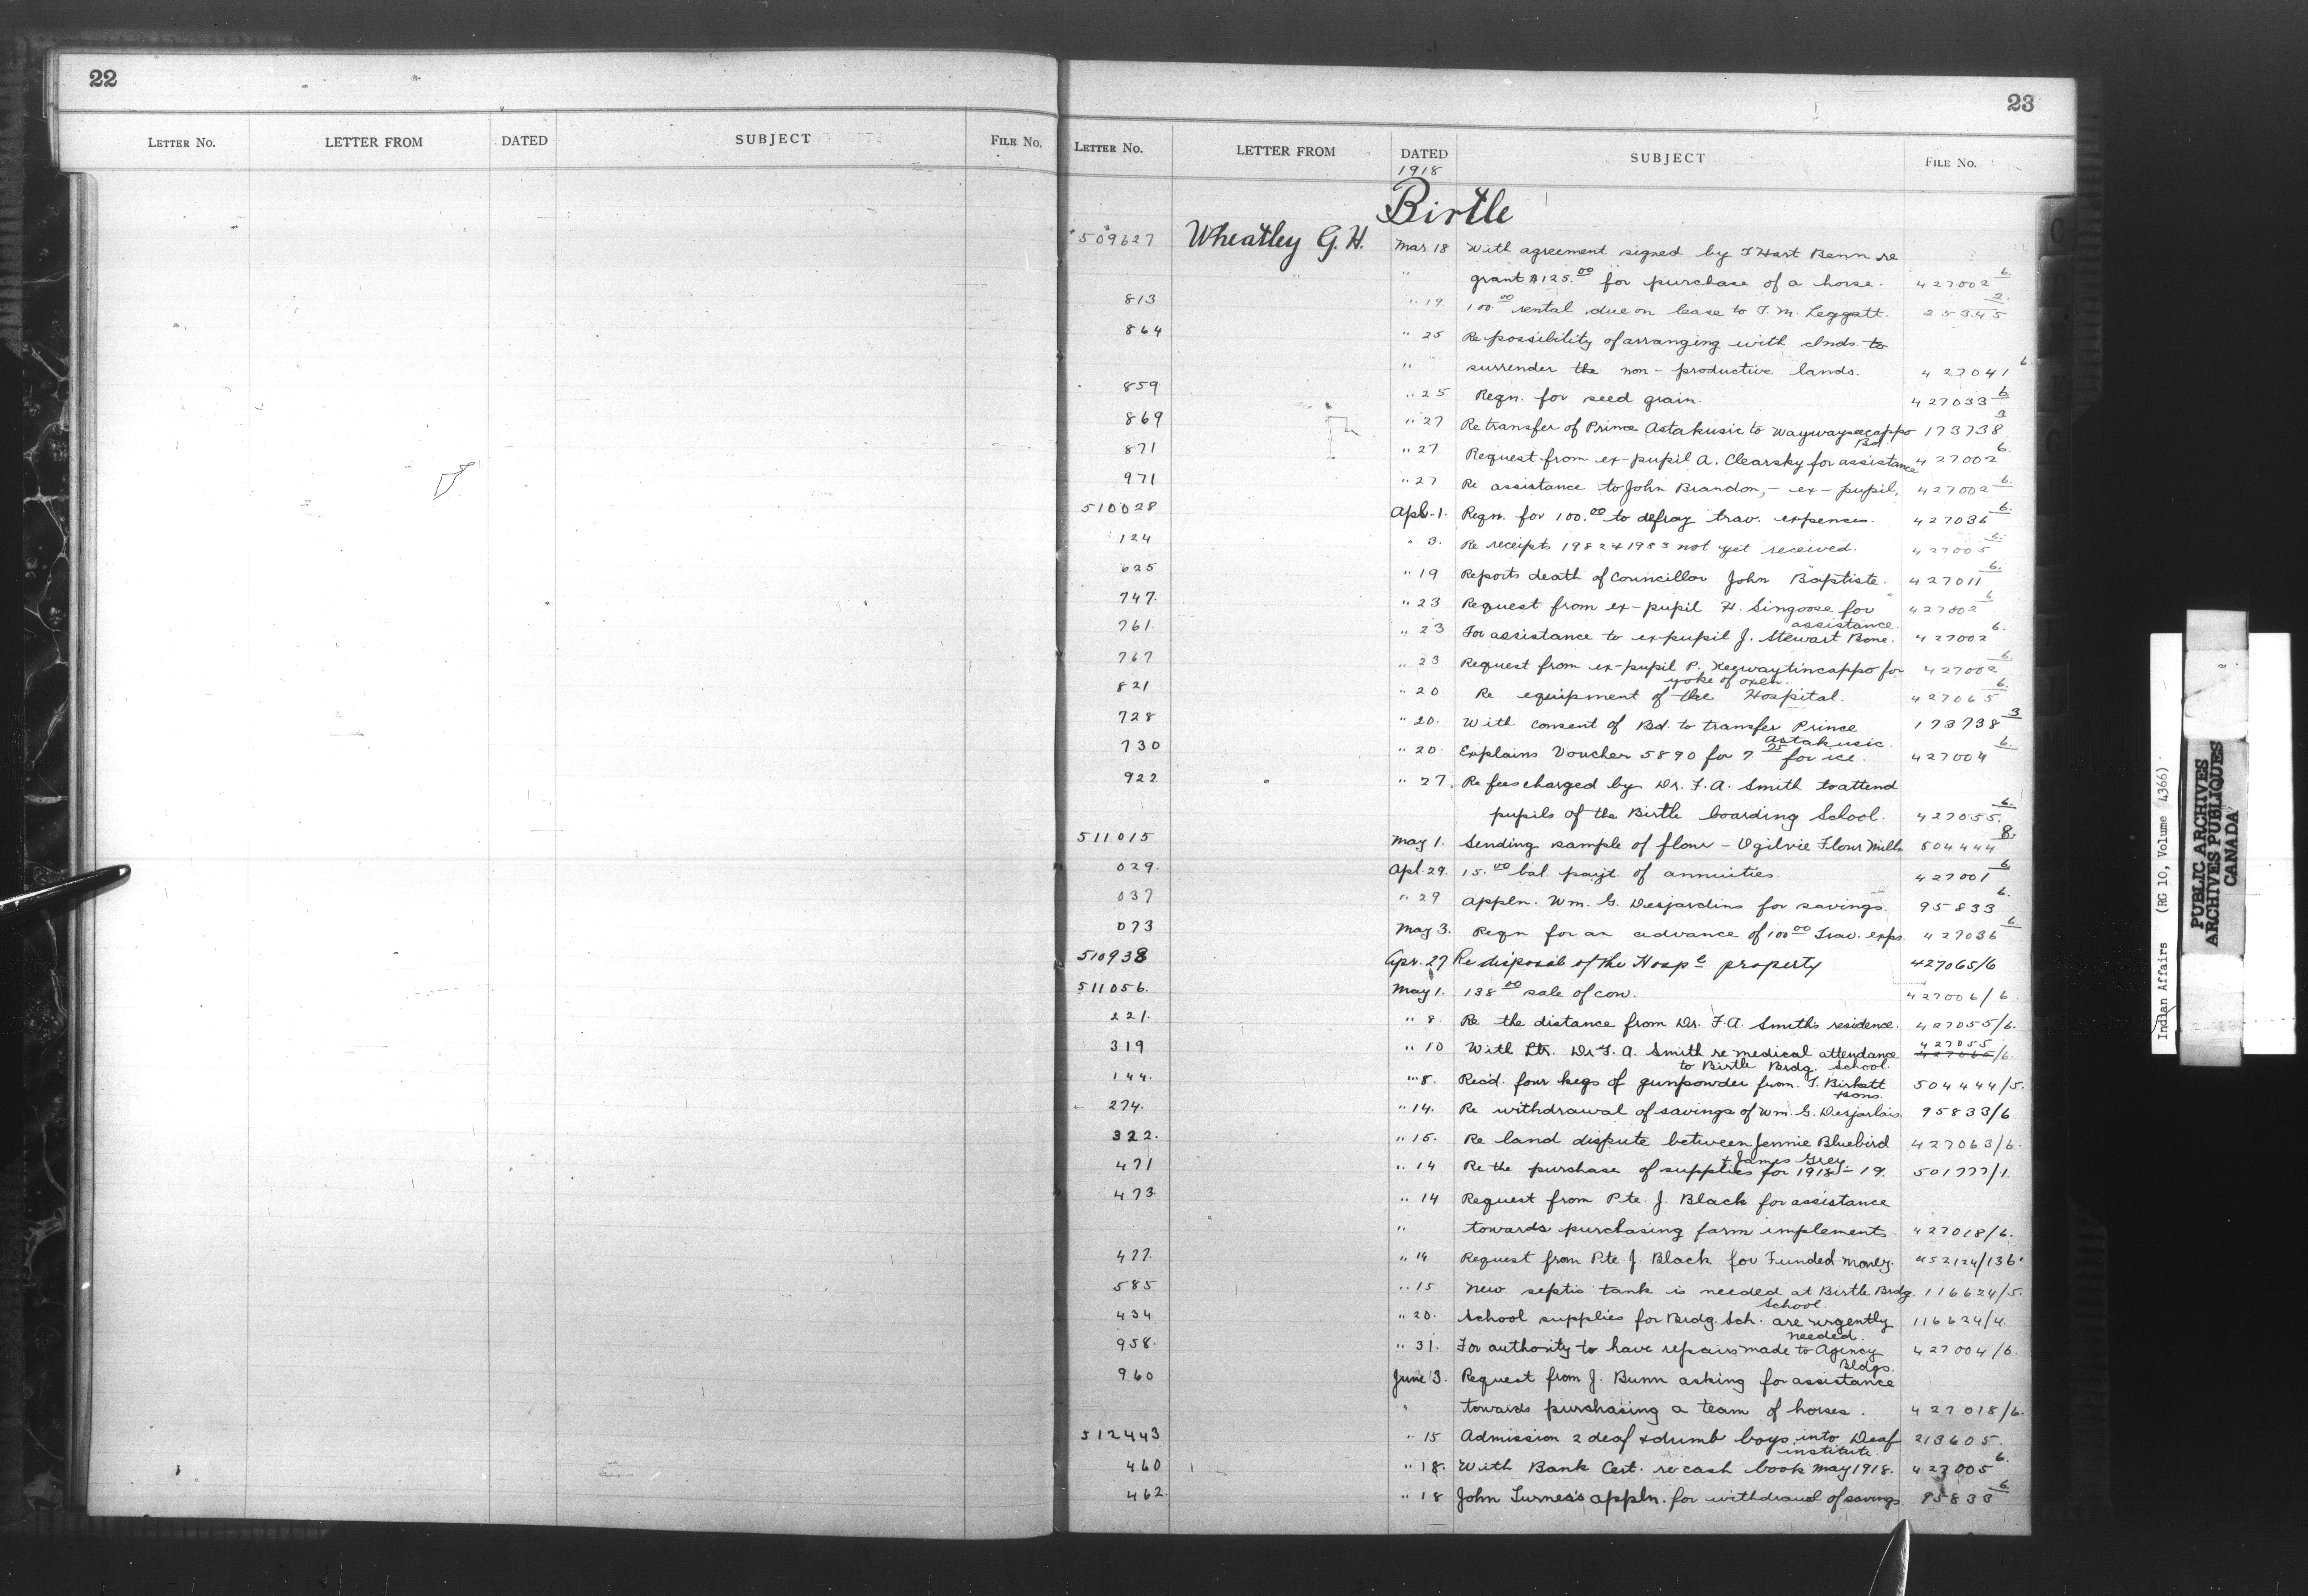 22
LETTER No. LETTER FROM DATED SUBJECT FILE No.
23
LETTER No. LETTER FROM DATED SUBJECT FILE No.
1918
Birtle
509627 Wheatley G. H. Mar 18 With agreement signed by T Hart Benn re
" grant $125.00 for purchase of a horse. 427002 6.
813 " 19 100.00 rental due on lease to T. M. Leggatt. 25345 2.
864 " 25 Re possibility of arranging with Inds to
" surrender the non-productive lands. 427041 6
859 " 25 Reqn. for seed grain. 427033 6
869 " 27 Re transfer of Prince Astakusic to Waywayseecappo 173738 3
Bd.
871 " 27 Request from ex-pupil A. Clearsky for assistance 427002 6.
971 " 27 Re assistance to John Brandon, - ex-pupil, 427002 6.
510028 Apl. 1. Reqn. for 100.00 to defray trav. expenses. 427036 6.
124 " 3. Re receipts 1982 & 1983 not yet received. 427005 6.
625 " 19 Reports death of Councillor John Baptiste. 427011 6.
747. " 23 Request from ex-pupil H. Singoose for 427002 6
assistance.
761. " 23 For assistance to expupil J. Stewart Bone. 427002 6.
767 " 23 Request from ex-pupil P. Keewaytincappo for 427002 6.
yoke of oxen.
821 " 20 Re equipment of the Hospital. 427065 6.
728 " 20. With consent of Bd. to transfer Prince 173738 3
Astakusic.
730 " 20. Explains Voucher 5890 for 7 25 for ice. 427004 6.
922 " 27. Re fees charged by Dr. F. A. Smith to attend
pupils of the Birtle boarding School. 427055. 6.
511015 May 1. Sending sample of flour - Ogilvie Flour Mills 504444 8.
029. Apl. 29. 15.00 bal. payt. of annuities. 427001 6
037 " 29 Appln. Wm. G. Desjardins for savings. 95833 6.
073 May 3. Reqn for an advance of 100 00 Trav. exps. 427036 6
510938 Apr. 27 Re disposal of the Hospl property 427065/6
511056. May 1. 138 00 sale of cow. 427006/6.
221. " 8. Re the distance from Dr. F. A. Smiths residence. 427055/6.
427055
319 " 10 With Ltr. Dr F. A. Smith re medical attendance 427065/6.
to Birtle Brdg. School.
144. " 8. Recd. four kegs of gunpowder from T. Birkett 504444/5.
& sons.
274. " 14. Re withdrawal of savings of Wm. G. Desjarlais. 95833/6
322. " 15. Re land dispute between Jennie Bluebird 427063/6.
& James Grey
471 " 14 Re the purchase of supplies for 1918-19. 501777/1.
473 " 14 Request from Pte. J. Black for assistance
" towards purchasing farm implements. 427018/6.
477. " 14 Request from Pte. J. Black for Funded money. 452124/136
585 " 15 New septic tank is needed at Birtle Brdg. 116624/5.
School.
434 " 20. School supplies for Brdg. Sch. are urgently 116624/4.
needed.
958. " 31. For authority to have repairs made to Agency 427004/6.
Bldgs.
960 June 3. Request from J. Bunn asking for assistance
" towards purchasing a team of horses. 427018/6.
512443 " 15 Admission 2 deaf & dumb boys into Deaf 213605.
institute.
460 " 18. With Bank Cert. re cash book May 1918. 427005 6.
462. " 18 John Turner's appln. for withdrawal of savings. 95833 6
Indian Affairs (RG 10, Volume 4366)
PUBLIC ARCHIVES
ARCHIVES PUBLIQUES
CANADA